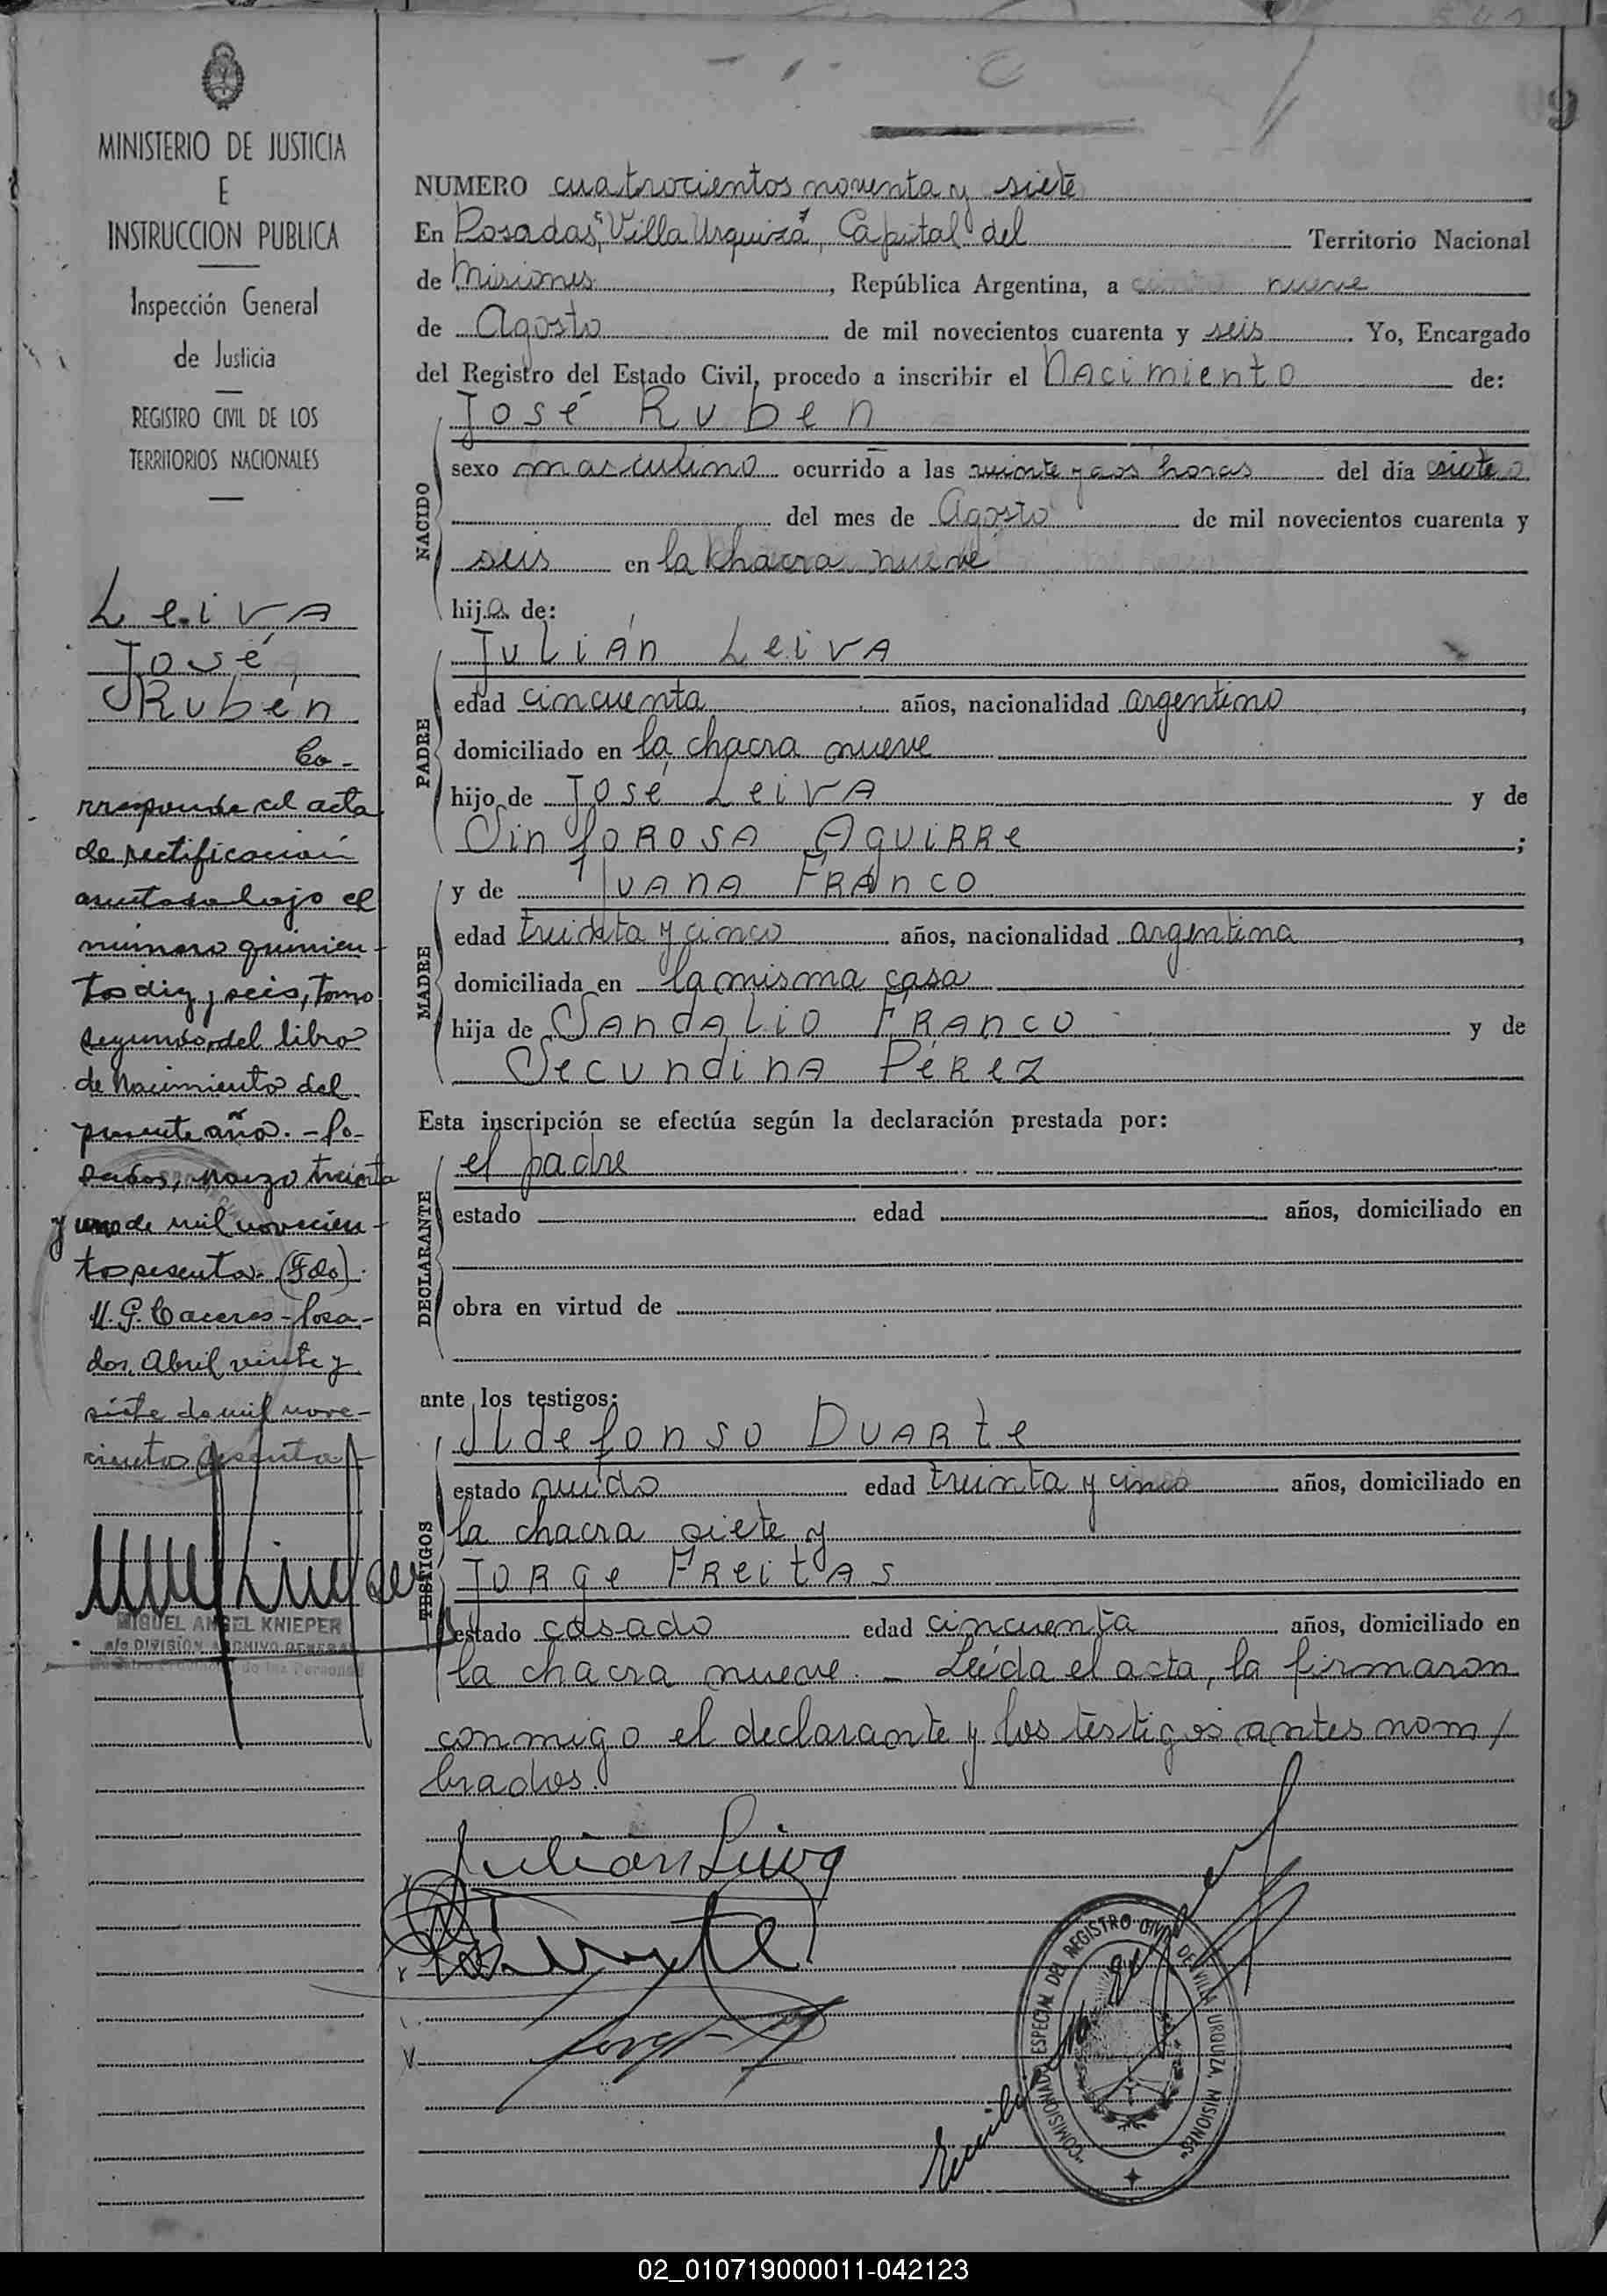 MINISTERIO DE JUSTICIA
E
INSTRUCCION PUBLICA
Inspección General
de Justicia
REGISTRO CIVIL DE LOS
TERRITORIOS NACIONALES
Leiva
José
Rubén
Co-
rresponde al acta
de rectificación
asentada bajo el
número quinien-
tos diez y seis, tomo
segundo, del libro
de Nacimiento del
presente año. - Po-
sadas, marzo treinta
y uno de mil novecien-
tos sesenta. (Fdo).
M. G. Caceres - Posa-
das, Abril veinte y
siete de mil nove-
cientos sesenta
MIGUEL ANGEL KNIEPER
a/c DIVISIÓN ARCHIVO GENERAL
Registro Provincial de las Personas
NUMERO cuatrocientos noventa y siete
En Posadas, "Villa Urquiza", Capital del Territorio Nacional
de Misiones, República Argentina, a nueve
de Agosto de mil novecientos cuarenta y seis. Yo, Encargado
del Registro del Estado Civil, procedo a inscribir el Nacimiento de:
NACIDO
José Ruben
sexo masculino ocurrido a las veinte y dos horas del día siete
del mes de Agosto de mil novecientos cuarenta y
seis en la chacra nueve
hijo de:
PADRE
Julián Leiva
edad cincuenta años, nacionalidad argentino,
domiciliado en la chacra nueve
hijo de José Leiva y de
Sinforosa Aguirre;
MADRE
y de Juana Franco
edad treinta y cinco años, nacionalidad argentina,
domiciliada en la misma casa
hija de Sandalio Franco y de
Secundina Pérez
Esta inscripción se efectúa según la declaración prestada por:
DECLARANTE
el padre
estado edad años, domiciliado en
obra en virtud de
ante los testigos:
TESTIGOS
Ildefonso Duarte
estado viudo edad treinta y cinco años, domiciliado en
la chacra siete y
Jorge Freitas
estado casado edad cincuenta años, domiciliado en
la chacra nueve. - Leída el acta, la firmaron
conmigo el declarante y los testigos antes nom/
brados.
Julián Leiva
COMISIONADO ESPECIAL DEL REGISTRO CIVIL DE VILLA URQUIZA, MISIONES
02_010719000011-042123